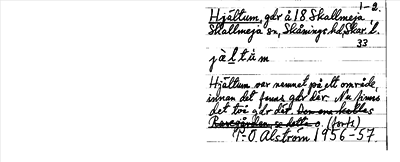 1-2.
Hjältum, går å 18 Skallmeja,
Skallmeja sn, Skånings hd, Skar. l.
33
jàltúm
Hjältum var namnet på ett område,
innan det fanns går där. Nu finns
det två går där. Den ena kallas
Baregården, o detta o. (forts.)
P.-O. Alström 1956-57.